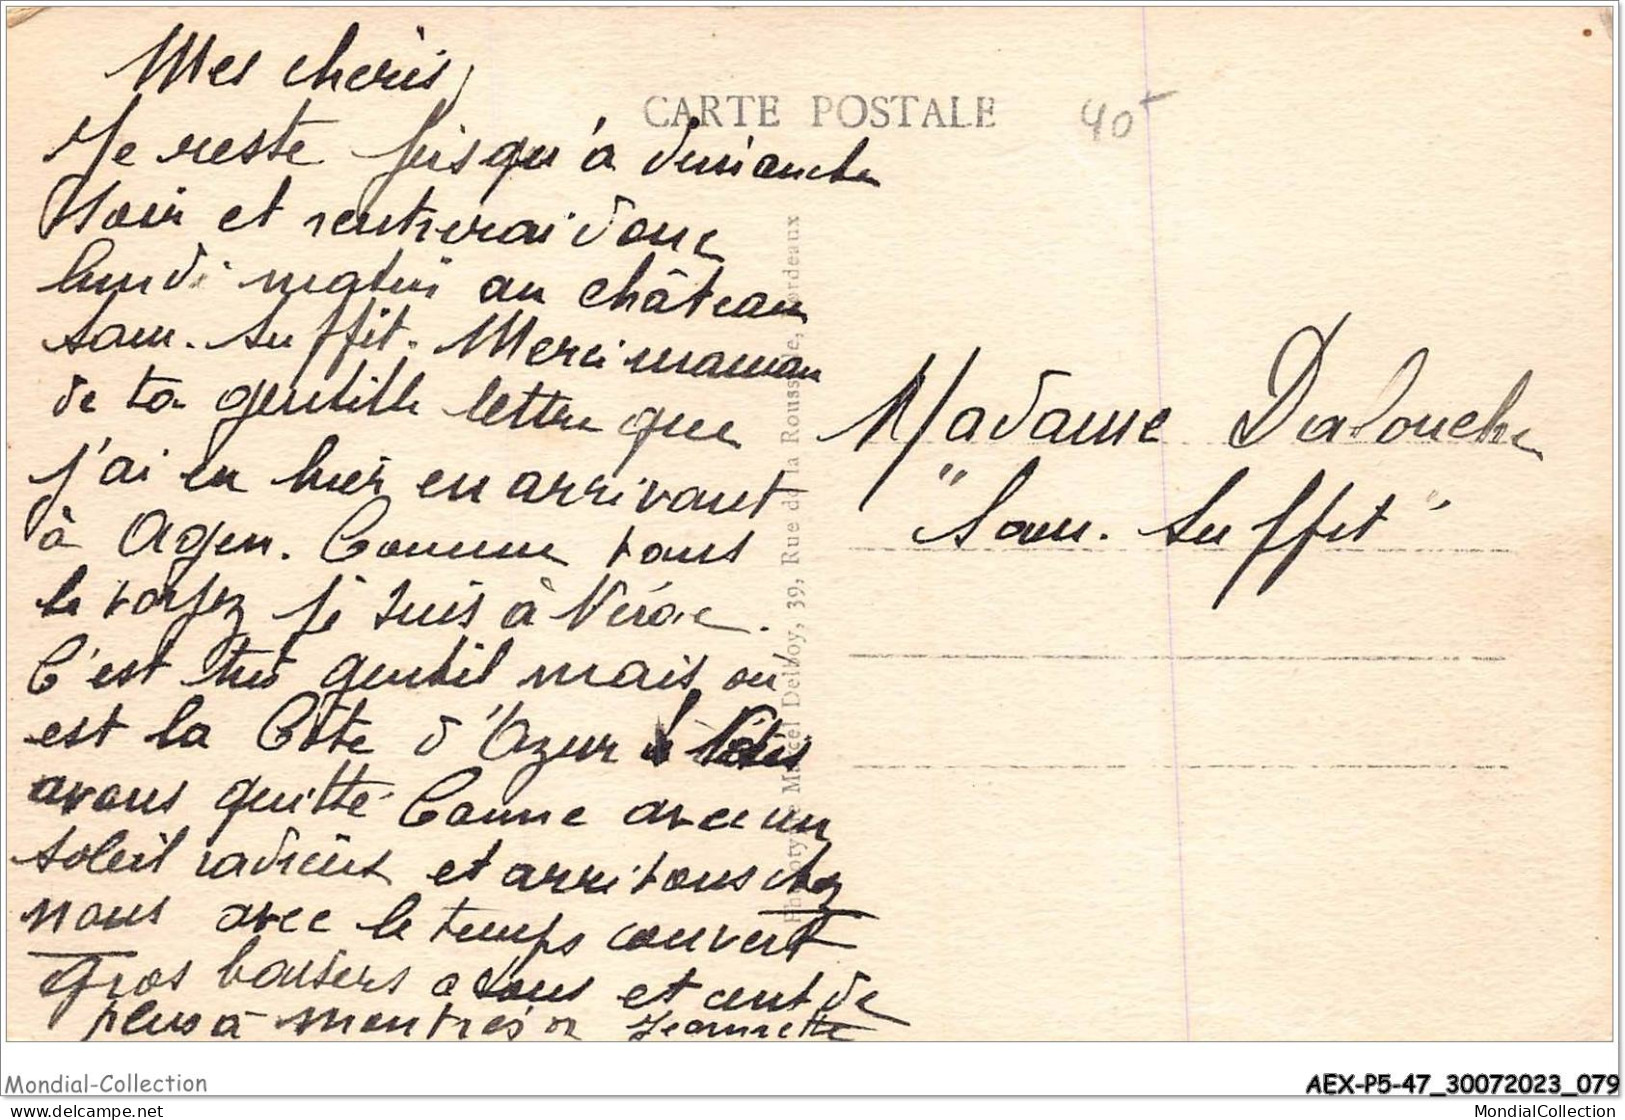 Mes chéris,
CARTE POSTALE
40
Je reste jusqu'à dimanche
soir et rentrerai donc
lundi matin au château
Sam. Su ffit. Merci maman
de ta gentille lettre que
j'ai eu hier en arrivant
à Agen. Comme vous
le voyez je suis à Nérac.
C'est très gentil mais où
est la Côte d'Azur ! Nous
avons quitté Canne avec un
soleil radieux et arrivons chez
nous avec le temps couvert
Gros baisers à tous et cent de
plus à mon trésor Jeannette
Madame
"Sam. Su ffit"
Phototypie Marcel Delboy, 39, Rue de la Rousselle, Bordeaux
Mondial-Collection
AEX-P5-47_30072023_079
https://www.delcampe.net/fr/collections/store/mondial-collection
MondialCollection